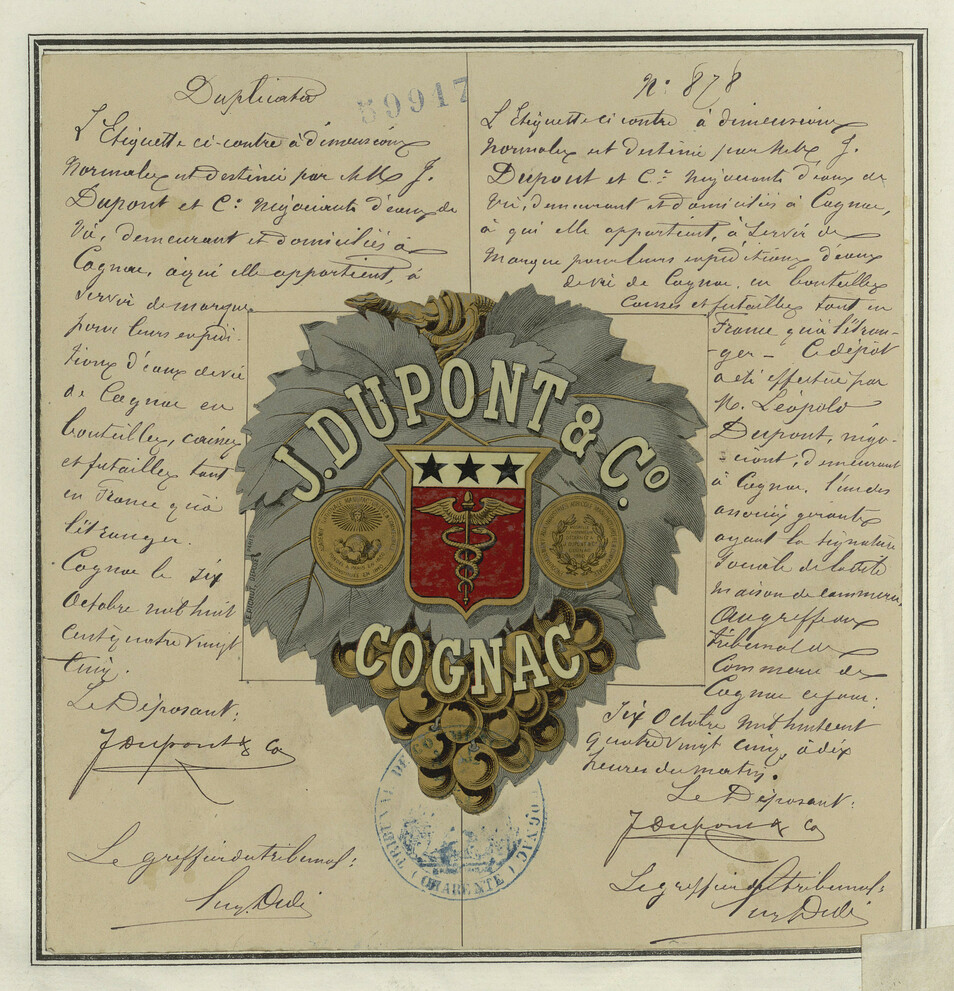 Duplicata
59917
L'Etiquette ci-contre à dimensions
Normales est destinée par MM J.
Dupont et Cie Négociants d'eaux de
Vie, demeurant et domiciliés à
Cognac, à qui elle appartient, à
servir de marque
pour leurs expédi-
tions d'eaux de vie
de Cognac en
bouteilles, caisses
et futailles tant
en France qu'à
l'étranger.
Cognac le six
Octobre mil huit
cent quatre vingt
cinq.
Le Déposant:
J Dupont & Co
Le greffier du tribunal:
No 878
L'Etiquette ci contre à dimensions
Normales est destinée par MM J.
Dupont et Cie Négociants d'eaux de
Vie, demeurant et domiciliés à Cognac,
à qui elle appartient, à servir de
marque pour leurs expéditions d'eaux
de vie de Cognac, en bouteilles
caisses et futailles tant en
France qu'à l'étran-
-ger – Ce dépôt
a été effectué par
M. Léopold
Dupont, négo-
-ciant, demeurant
à Cognac, l'un des
associés gérants
ayant la signature
sociale de ladite
maison de commerce,
au greffe du
tribunal de
Commerce de
Cognac ce jour:
six Octobre mil huit cent
quatre vingt cinq, à dix
heures du matin.
Le Déposant:
J Dupont & Co
Le greffier du tribunal:
J. DUPONT & Co.
COGNAC
TRIBUNAL DE COMMERCE COGNAC
(CHARENTE)